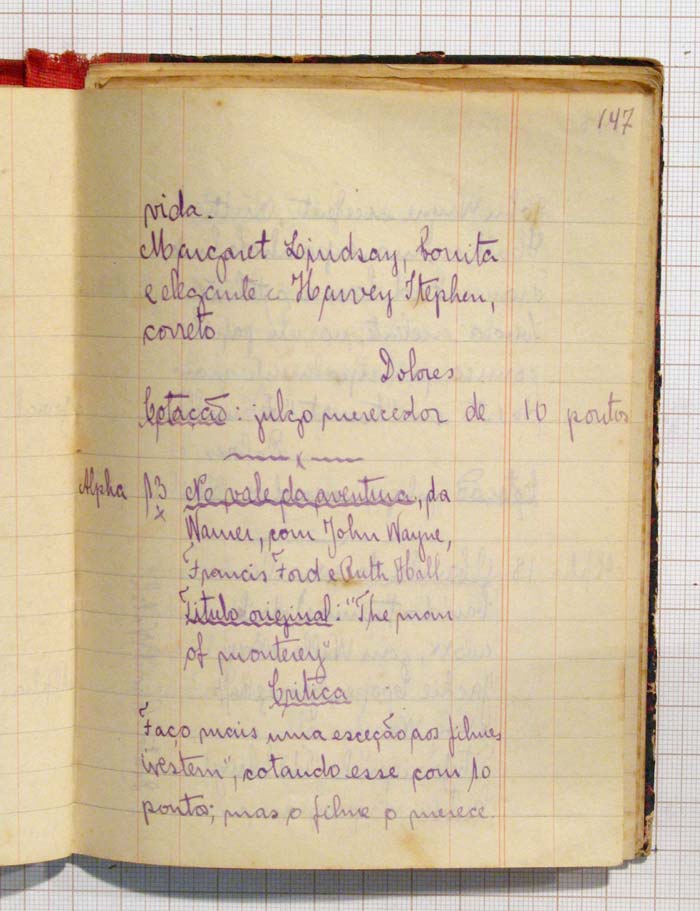 147
vida.
Margaret Lindsay, bonita
e elegante. Harvey Stephen,
correto
Dolores
Cotação: julgo merecedor de 10 pontos
x
Alpha 13 No vale da aventura, da
x
Warner, com John Wayne,
Francis Ford e Ruth Hall
Titulo original: "The man
of monterey"
Critica
Faço mais uma exceção aos filmes
western", cotando esse com 10
pontos; mas o filme o merece.